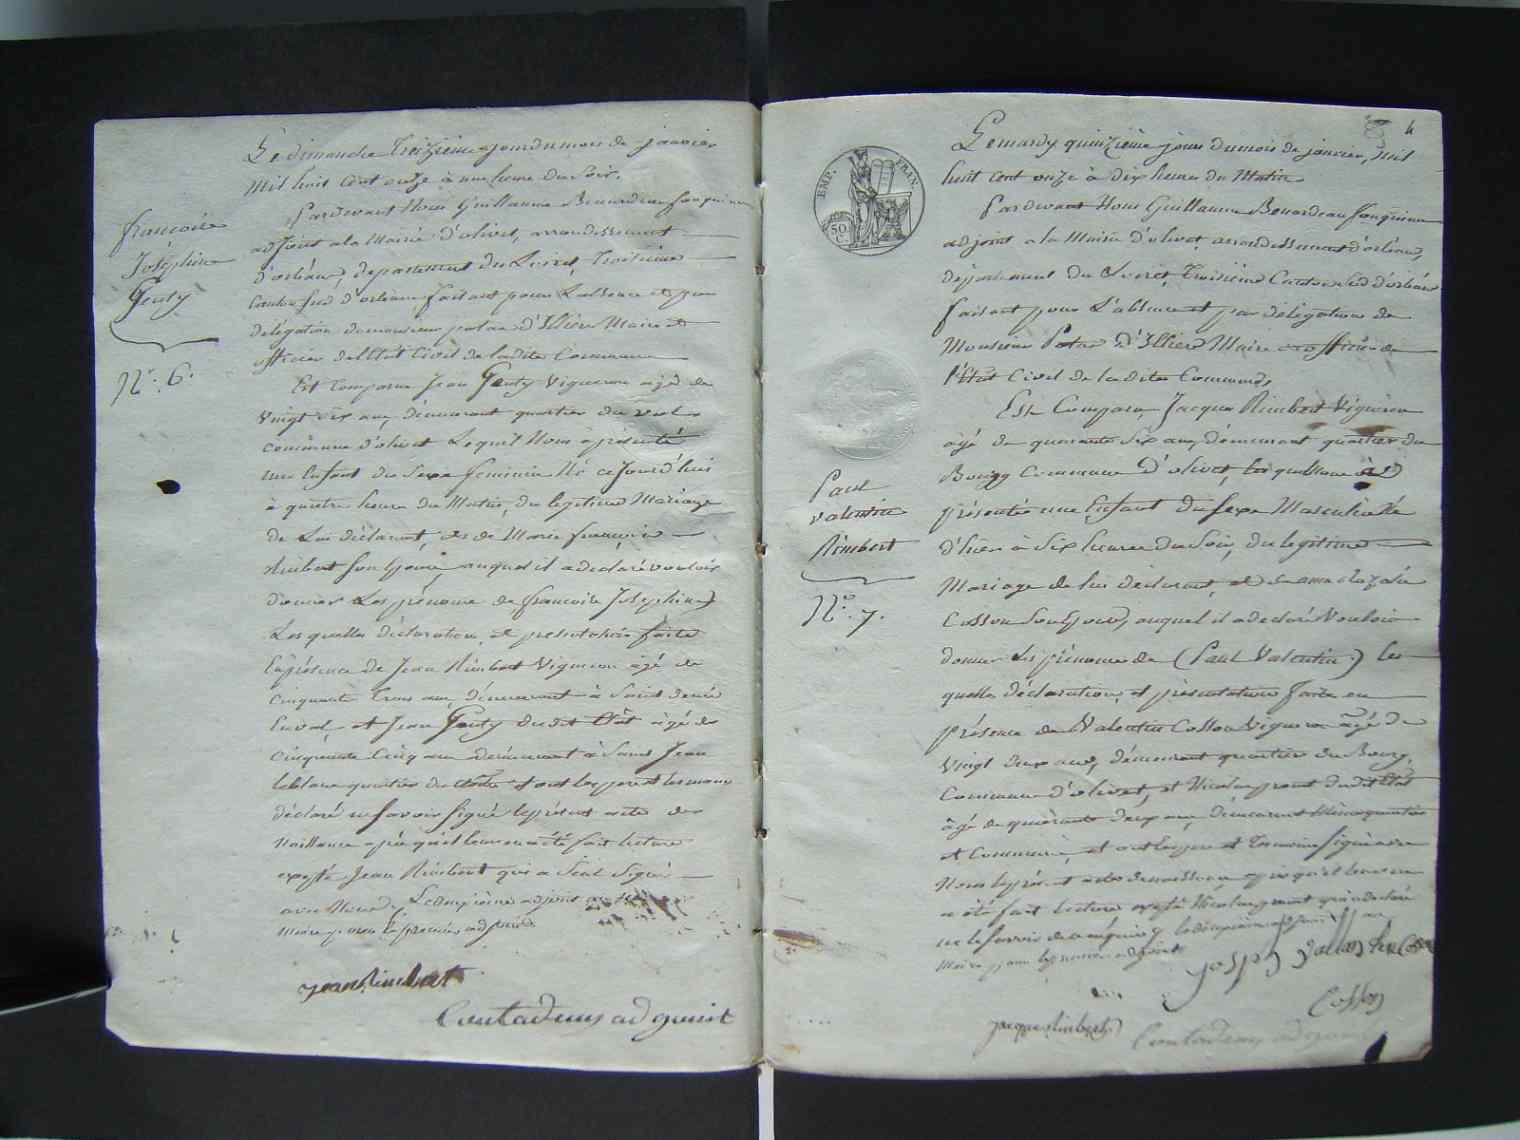 Le dimanche Treizième jour du mois de janvier
Mil huit cent onze à une heure du Soir.
Pardevant Nous Guillaume
adjoint a la Mairie d'olivet, arrondissement
d'orléans, departement du Loiret, Troisième
Canton Sud d'orléans faisant pour L'absence et par
délégation de monsieur d'Illiers Maire et
officier de l'Etat Civil de ladite Commune
françoise
Joséphine
Genty
N°. 6.
Est Comparu Jean Genty Vigneron agé de
vingt six ans, demeurant quartier du val
commune d'olivet Lequel Nous à présenté
une Enfant du Sexe feminin Né ce Jourd'hui
à quatre heure du Matin, du légitime Mariage
de Lui déclarant, et de Marie françoise
Rimbert Son Epouse, auquel il a declaré vouloir
donner Les prénoms de francoise Josephine
Les quelles déclaration et presentation faite
En présence de Jean Rimbert Vigneron agé de
Cinquante Trois ans demeurant à Saint denis
Enval et Jean Genty dudit Etat agé de
Cinquante Cinq ans demeurant à Saint Jean
leblanc quartier du et ont les pere et temoins
déclaré ne Savoir Signé le présent acte de
Naissance après qu'il leur en a été fait lecture
excepté Jean Rimbert qui a Seul Signé
avec Nous adjoint
Maire pour le premier adjoint
Jean Rimbert
adjoint
4
EMP. FRAN.
50 C.
Le mardy quinzième jour du mois de janvier, Mil
huit cent onze à dix heures du Matin
Pardevant Nous Guillaume
adjoint a la Mairie d'olivet arrondissement d'orléans,
département du Loiret, Troisième Canton Sud d'orléans
faisant pour L'absence et par délégation de
Monsieur d'Illiers Maire et officier de
l'Etat Civil de ladite Commune,
Est Comparu, Jacques Rimbert Vigneron
âgé de quarante Six ans, demeurant quartier du
Bourg Commune d'olivet, lequel Nous à
présenté une Enfant du Sexe Masculin Né
d'hier à Six heures du Soir, du légitime
Paul
valentin
Rimbert
N°. 7.
Mariage de lui déclarant, et de
Cosson Son Epouse, auquel il a declaré Vouloir
donner Les prénoms de (Paul Valentin) les
quelles déclaration, et présentation faite en
présence de Valentin Cosson Vigneron âgé de
Vingt deux ans, demeurant quartier du Bourg,
Commune d'olivet, et Nicolas dudit Etat
âgé de quarante deux ans, demeurant
et Commune, et ont les pere et Temoins Signé avec
Nous le présent acte de naissance après qu'il leur en
a été fait lecture excepté Nicolas qui a declaré
ne le Savoir de ce
Maire pour le premier adjoint
Cosson
Jacque Rimbert